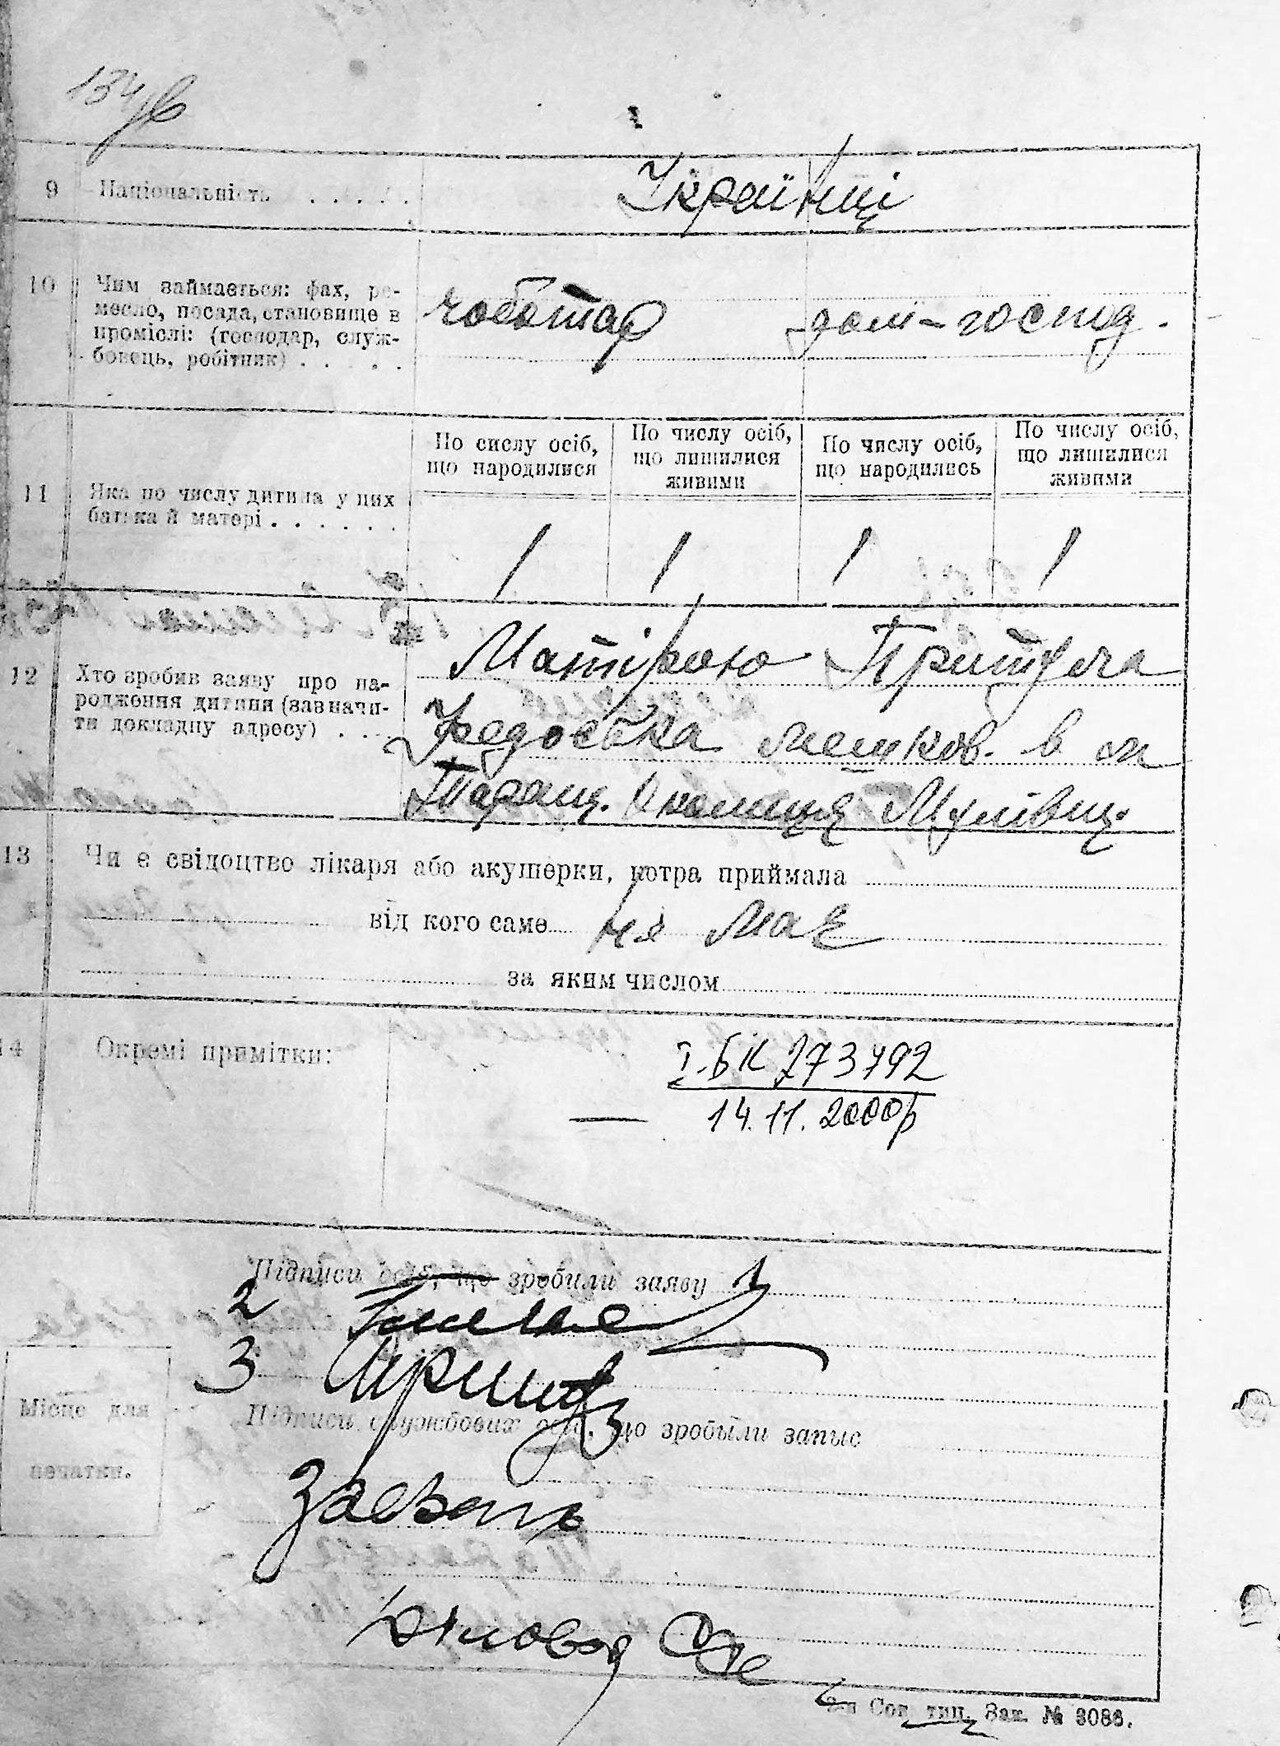 134 зв
9 Національність . . . . . Українці
10 Чим займається: фах, ре-
месло, посада, становище в
проміслі: (господар, служ-
бовець, робітник) . . . . .
чоботар дом-господ.
По сислу осіб,
що народилися
По числу осіб,
що лишилися
живими
По числу осіб,
що народились
По числу осіб,
що лишилися
живими
11 Яка по числу дитина у них
батька й матері . . . . . .
1 1 1 1
12 Хто зробив заяву про на-
родження дитини (зазначи-
ти докладну адресу) . . .
Матірою Притула
Федоська мешков. в м
Таращ. Околиця Мулівщ.
13 Чи є свідоцтво лікаря або акушерки, котра приймала
від кого саме ня має
за яким числом
14 Окремі примітки:
І-БК 273792
— 14.11.2000р
Підписи осіб, що зробили заяву 1
2
3
Підписи службових осіб, що зробили запис
Місце для
печатки.
Діловод
2-я Сов. тип. Зак. № 3086.